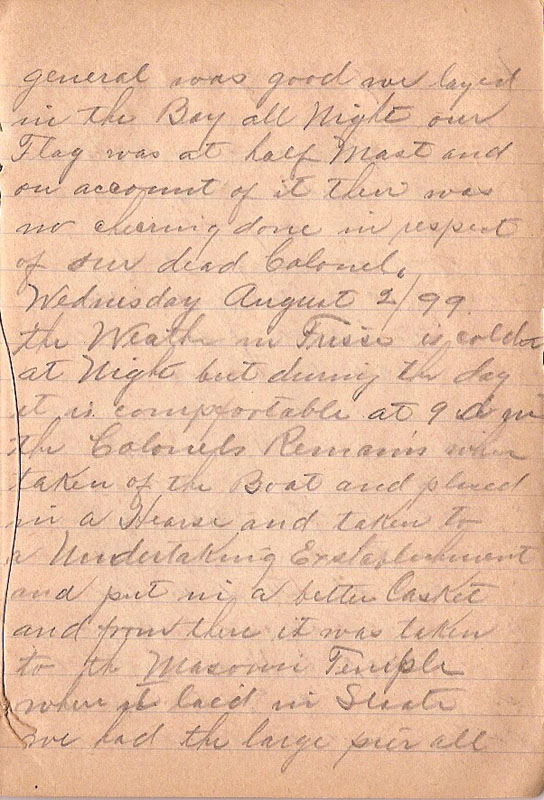 general was good we layed
in the Bay all Night our
Flag was at half Mast and
on account of it their was
no cheering done in respect
of our dead Colonel.
Wednesday August 2/99
the Weathe in Frisco is cold
at Night but during the day
it is compfortable at 9 a m
the Colonels Remains wher
taken of the Boat and placed
in a Hearse and taken to
a Undertaking Establishment
and put in a better Casket
and from there it was taken
to the Masonic Temple
where it laid in State
we had the large pier all